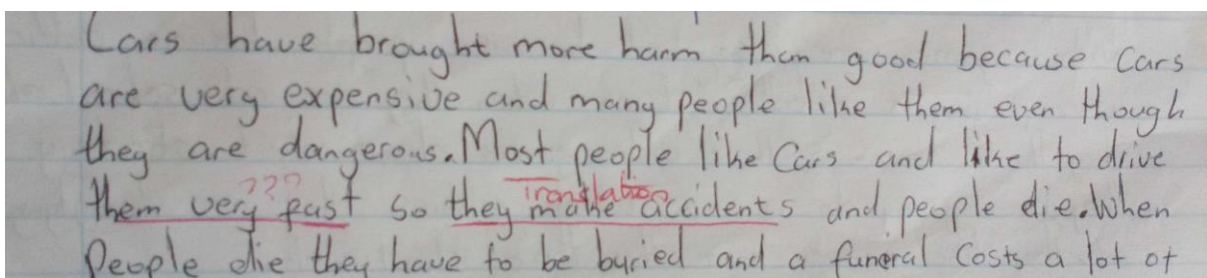 Cars have brought more harm than good because Cars
are very expensive and many people like them even though
they are dangerous. Most people like Cars and like to drive
??? Translation
them very past so they make accidents and people die. When
People die they have to be buried and a funeral Costs a lot of